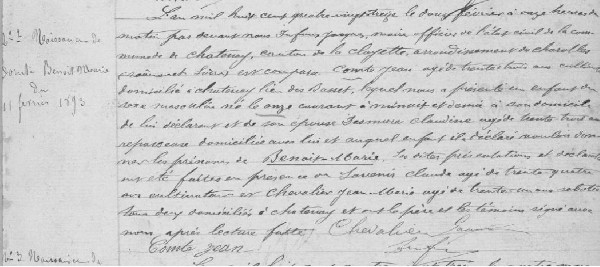 N° 2 Naissance de
Comte Benoit Marie
du
11 février 1893
L'an mil huit cent quatre vingt treize le douze février à onze heures du
matin par devant nous maire officier de l'état civil de la com-
mune de Chatenay, canton de la Clayette, arrondissement de Charolles
Saône et Loire est comparu Comte Jean âgé de trente trois ans cultivateur
domicilié à Chatenay lieu des Basset, lequel nous a présenté un enfant du
sexe masculin né le onze courant à minuit et demie à son domicile
de lui déclarant et de son épouse Claudine agée de trente trois ans
repasseuse domiciliée avec lui et auquel enfant il a déclaré vouloir don-
ner les prénoms de Benoit-Marie. Les dites présentations et déclarations
ont été faites en présence de Lavenir Claude agé de trente quatre
ans cultivateur et Chevalier Jean Marie agé de trente un ans
tous deux domiciliés à Chatenay et ont le père et les témoins signé avec
nous après lecture faite. Chevalier
Comte Jean
N° 3 Naissance de